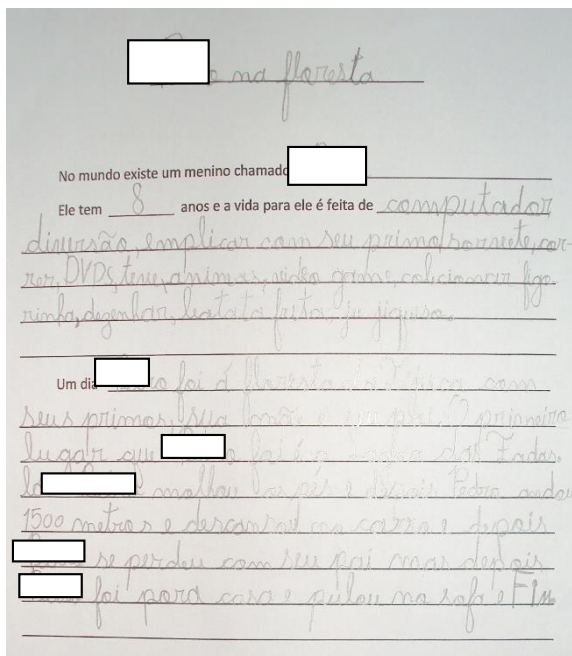 na floresta
No mundo existe um menino chamado
Ele tem 8 anos e a vida para ele é feita de computador
diversão, implicar com seu primo, sorvete, cor-
rer, DVDs, tene, animas, video game, colicionar figo
rinha, dezenhar, batata frita, ju jiquso.
Um dia foi á floresta da Tijuca com
seus primos, sua mãe e seu pai. O primeiro
lugar que foi é o das Fadas.
lá molhou os pés e depois Pedro andou
1500 metros e descansou no carro e depois
se perdeu com seu pai mas depois
foi para casa e pulou no sofa e Fim